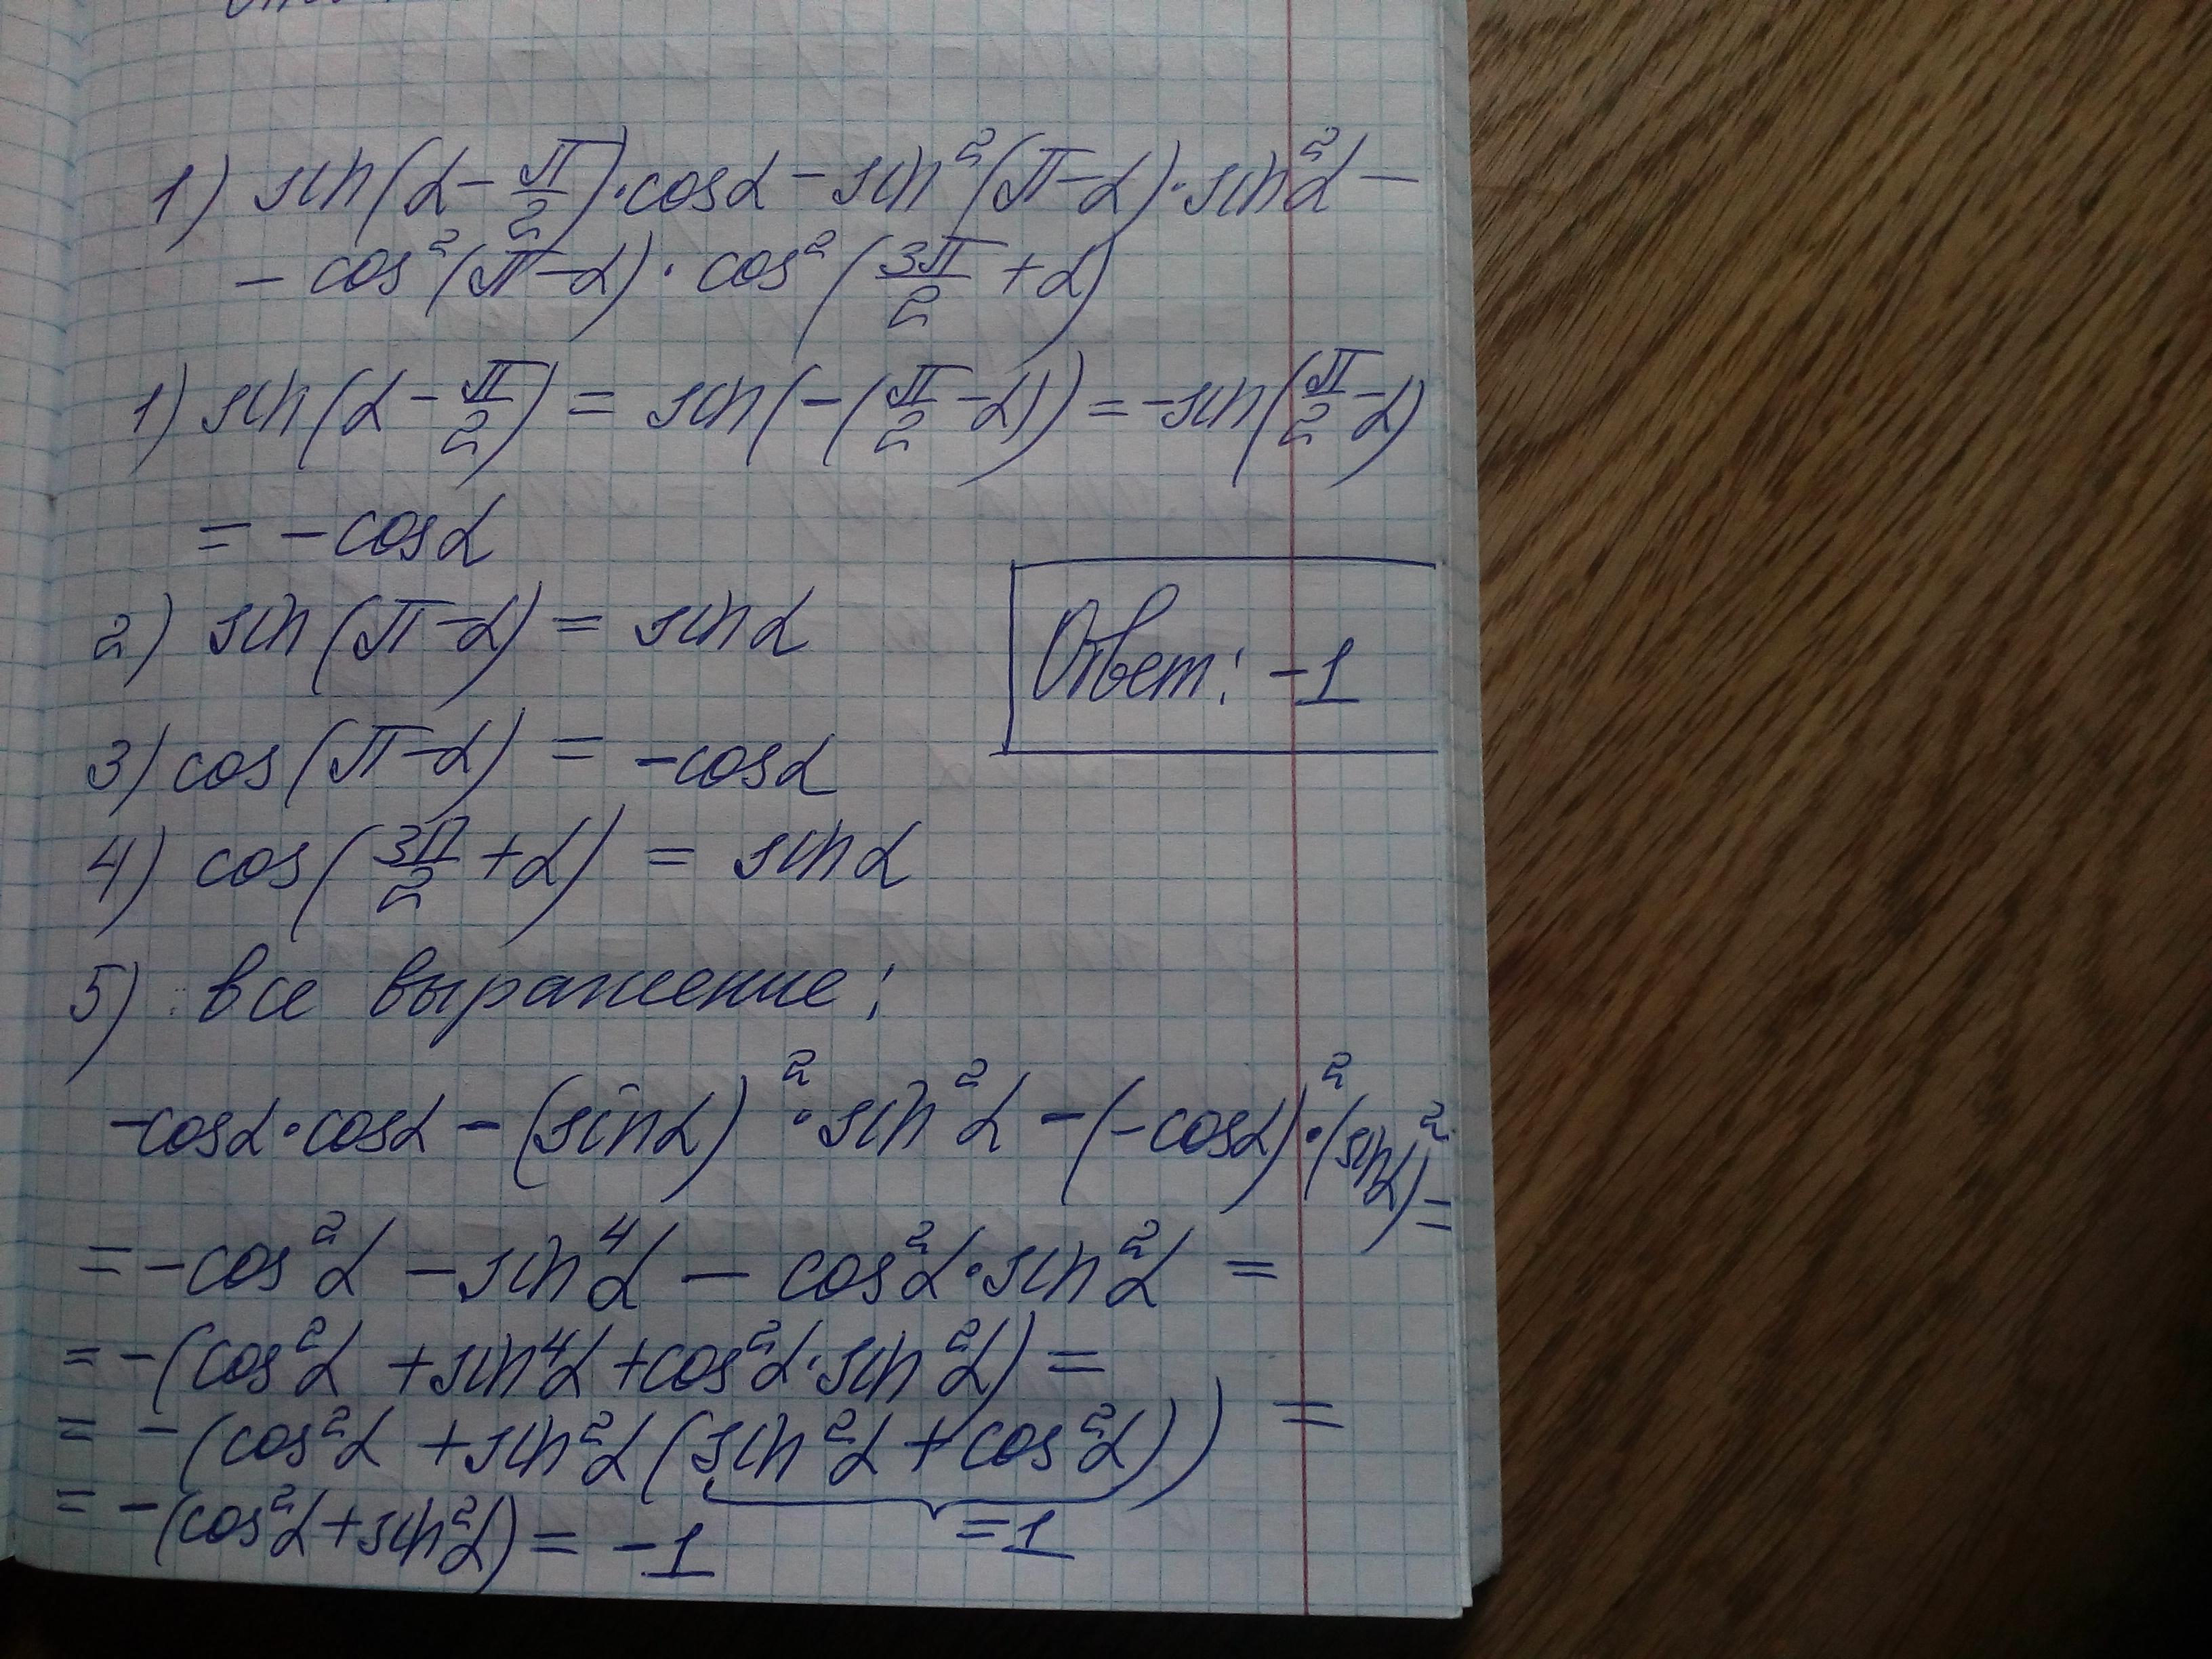 1) sin(α - π/2)·cosα - sin²(π-α)·sin²α -
- cos²(π-α)·cos²(3π/2 + α)
1) sin(α - π/2) = sin(-(π/2 - α)) = -sin(π/2 - α)
= -cosα
2) sin(π-α) = sinα
Ответ: -1
3) cos(π-α) = -cosα
4) cos(3π/2 + α) = sinα
5) все выражение:
-cosα·cosα - (sinα)²·sin²α - (-cosα)²·(sinα)² =
= -cos²α - sin⁴α - cos²α·sin²α =
= -(cos²α + sin⁴α + cos²α·sin²α) =
= -(cos²α + sin²α(sin²α + cos²α)) =
= -(cos²α + sin²α) = -1
=1